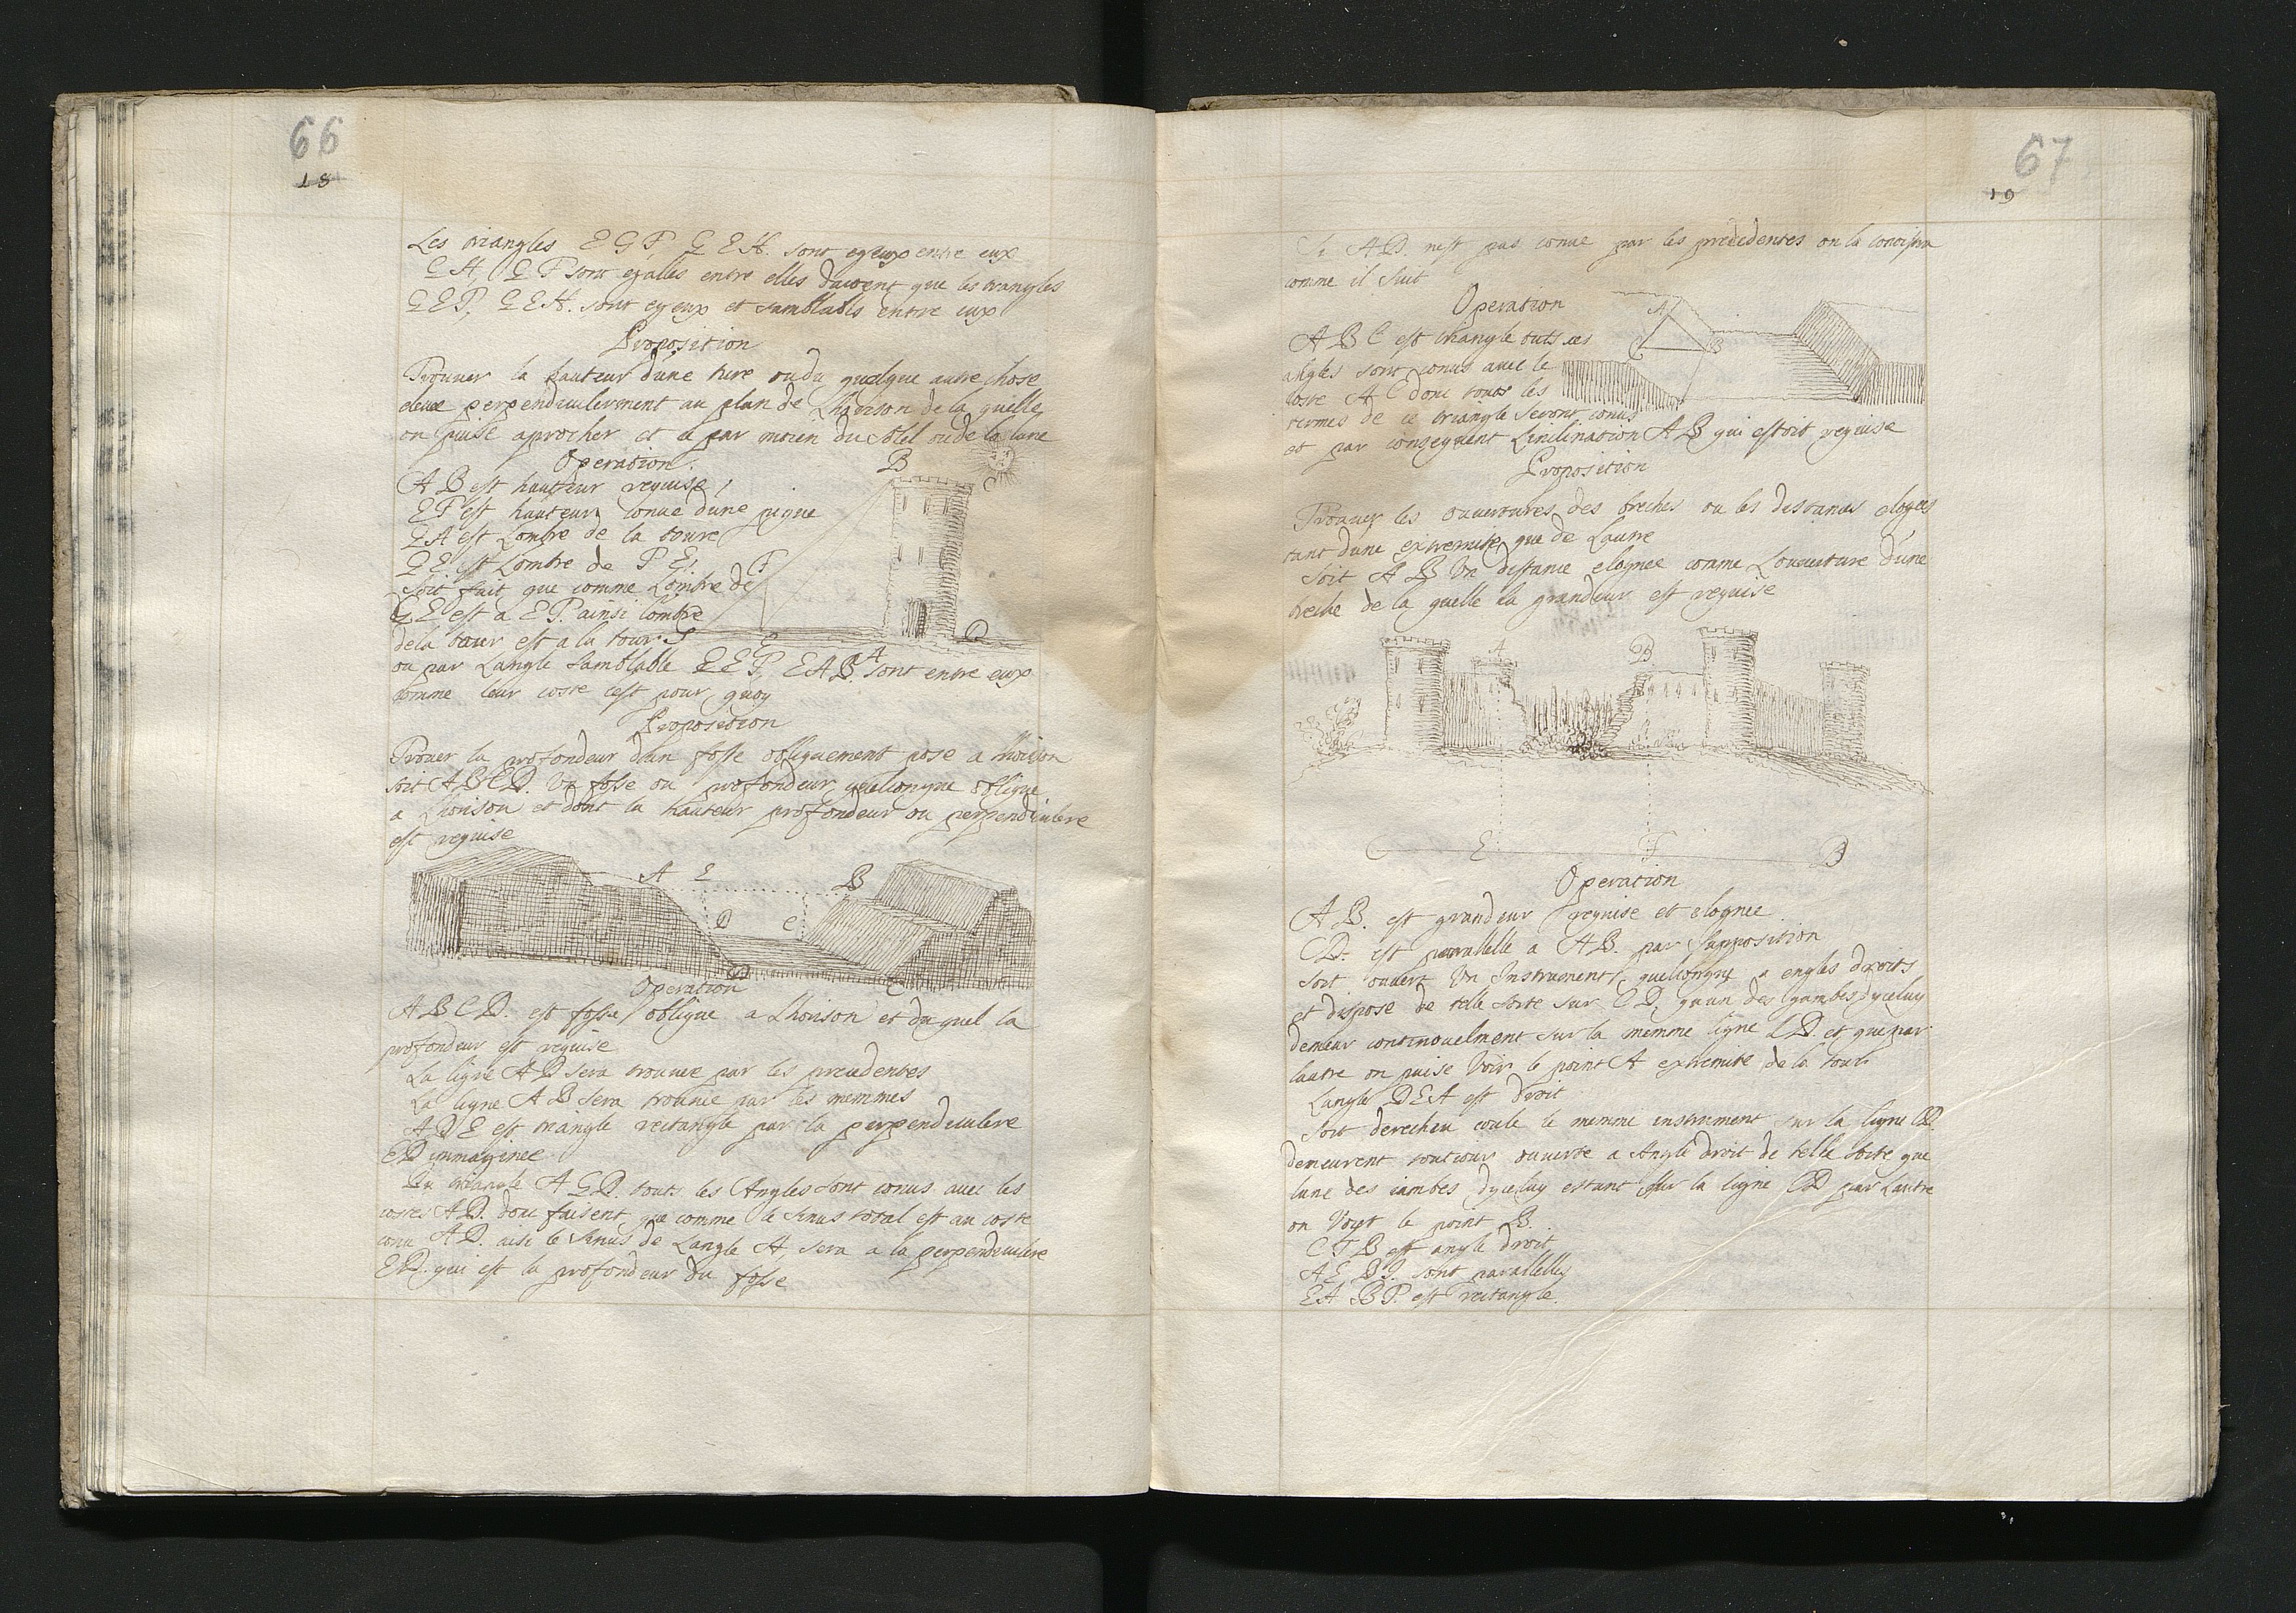 66
18
Les triangles E G F, G E H. sont egeux entre eux
G H, G F sont egalles entre elles dautent que les triangles
G E F, G E H. sont egeux et samblables entre eux
Proposition
Trouver la hauteur dune ture ou du quelque autre chose
elevee perpendiculerment au plan de Lhorison de la quelle
on puise aprocher et ce par moien du solel ou de la lune
Operation.
A B est hauteur requise
B
E F est hauteur conue dune pique
G A est Lombre de la toure
G E est Lombre de F E.
F
Soit fait que comme Lombre de
G E est a E F. ainsi lombre
dela tour est a la tour
G
E
D
ou par Langle samblable G E F, E A B. sont entre eux
A
comme leur coste cest pour quoy
Proposition
Trouer la profondeur dun fosse obliquement pose a lhorison
soit A B C D. Un fosse ou profondeur quelconque oblique
a Lhorison et dont la hauteur profondeur ou perpendiculere
est requise
A E B
D C
D C
Operation
A B C D. est fosse oblique a Lhorison et du quel la
profondeur est requise
La ligne A D sera trouvee par les precedentes
La ligne A B sera trouvee par les memmes
A D E est triangle rectangle par la perpendiculere
E D immaginee
Du triangle A E D. touts les Angles sont conus avec les
costes A D. donc faisent que comme le sinus total est au coste
conu A D. aisi le sinus de Langle A sera a la perpendiculere
E D. qui est la profondeur du fosse
67
19
Si A D. nest pas conue par les precedentes on la conoistra
comme il suit
Operation
A
C B
A B C est triangle touts ses
angles sont conus avec le
coste A C donc touts les
termes de ce triangle seront conus
et par consequent Linclination A B qui estoit requise
Proposition
Trouver les ouvertures des breches ou les distances elognes
tant dune extremite que de Lautre
Soit A B Un distance elognee comme Louverture dune
breche de la quelle la grandeur est requise
A B
C E F D
Operation
A B. est grandeur requise et elognee
C D. est paralelle a A B. par supposition
soit ouvert Un Instrument quelconque a engles droits
et dispose de telle sorte sur C D, quun des jambes dyceluy
demeur continouelment sur la memme ligne C D. et que par
lautre on puise Voir le point A extremite de la tour
Langle D E A est droit
Soit derecheu coule le memme instrument sur la ligne C D.
demeurent toutiour ouverte a Angle droit de telle sorte que
lune des iambes dyceluy estant sur la ligne C D par Lautre
on Voyt le point B.
C F B est angle droit
A E B F. sont paralelles
E A B F. est rectangle.